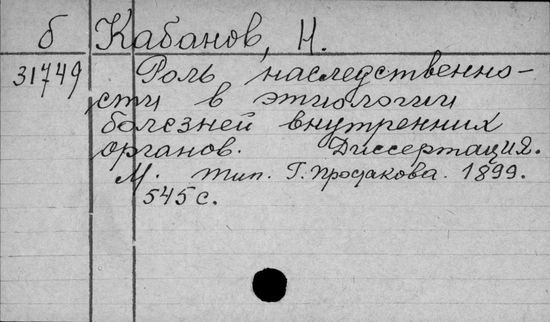 б Кабанов, Н.
31749 Роль наследственно-
сти в этиологии
болезней внутренних
органов. Диссертация.
М. тип. Г. Простакова. 1899.
545 с.